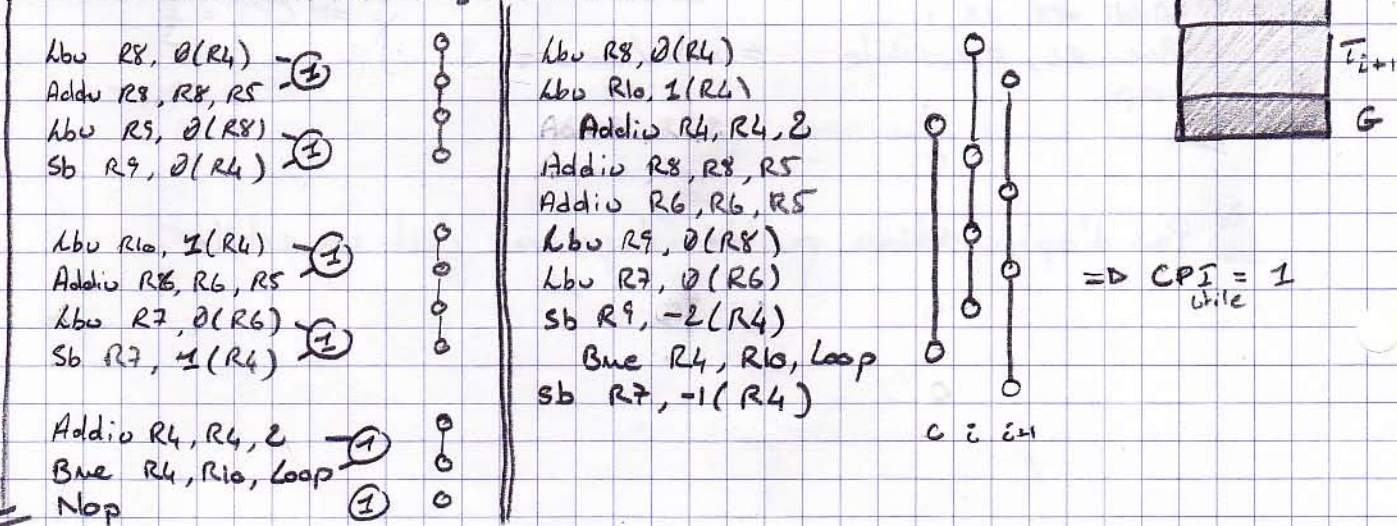 Lbu R8, 0(R4) -①
Addu R8, R8, R5
Lbu R9, 0(R8) ①
Sb R9, 0(R4)
Lbu R10, 1(R4) ①
Addiu R6, R6, R5
Lbu R7, 0(R6) ①
Sb R7, 1(R4)
Addiu R4, R4, 2 -①
Bne R4, R10, Loop
Nop ①
Lbu R8, 0(R4)
Lbu R10, 1(R4)
Addiu R4, R4, 2
Addiu R8, R8, R5
Addiu R6, R6, R5
Lbu R9, 0(R8)
Lbu R7, 0(R6)
Sb R9, -2(R4)
Bne R4, R10, Loop
Sb R7, -1(R4)
C i i+1
=D CPI = 1
utile
Ti+1
G